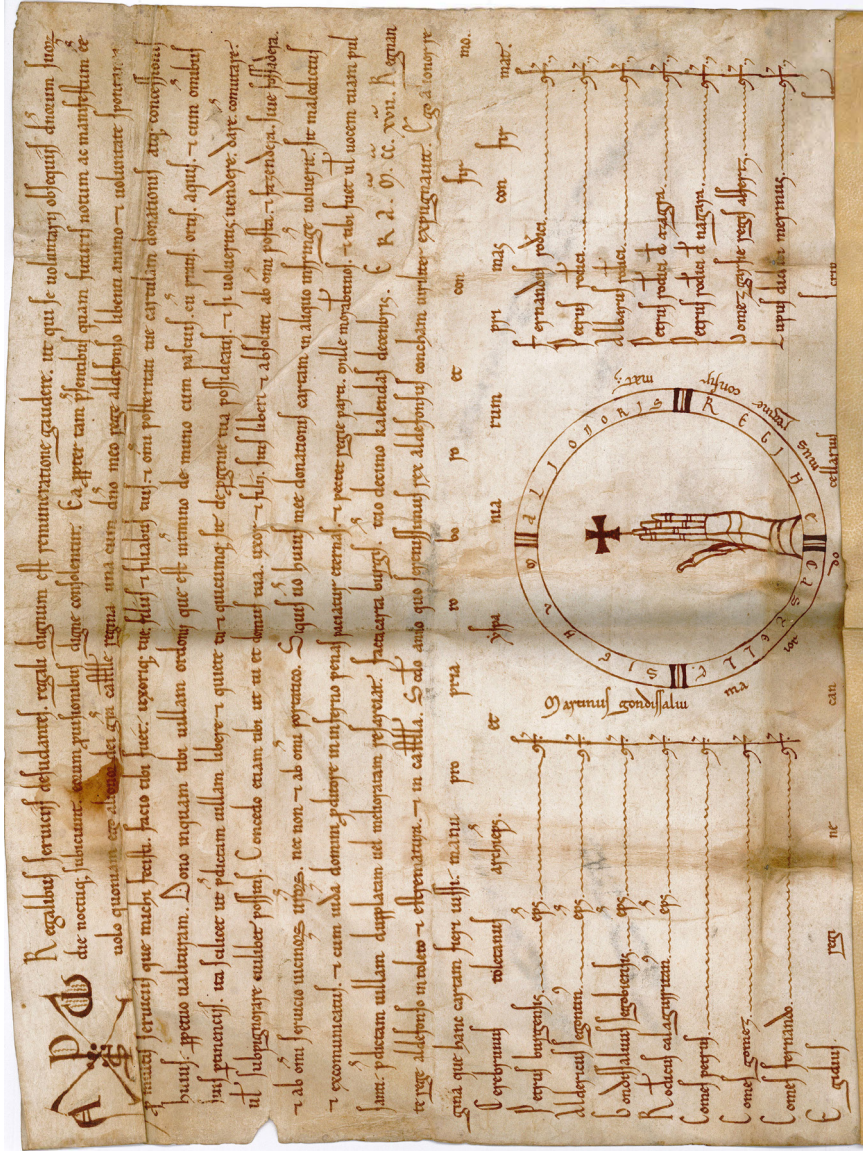 Regalibus seruiciis desudantes, regali dignum est remuneratione gaudere. ut qui se uoluntariis obsequiis dnorum suor
die noctuq; subiciunt, eorum puisionibus digne consolentur. Ea ppter tam psentibus quam futuris notum ac manifestum ee
uolo quoniam ego alienor dei gra castelle regina, una cum dno meo rege aldefonso libenti animo ⁊ uoluntate
p multis seruiciis que michi fecisti. facio tibi uxoriq; tue filiis ⁊ filiabus tuis, ⁊ omi posteritati tue cartulam donationis atq; concessionis
huius ppetuo ualituram. Dono inquam tibi uillam ordonu que est intmino de muno cum pascuis, cu pratis, ortis, aquis, ⁊ cum omibus
suis ptinenciis. ita scilicet ut pdictam uillam libere ⁊ quiete tu ⁊ quicumq; sit de pgenie tua possideatis, ⁊ si uolueritis uendere, dare comutare,
ut subpignorare cuilibet possitis. Concedo etiam tibi ut tu et domus tua, uxor ⁊ filii, sitis liberi ⁊ absoluti ab omi posta, ⁊ fazendera, siue fossadera.
⁊ ab omi seruicio nec non ⁊ ab omi portatico. Siquis uo huius mee donationis cartam in aliquo infringe uoluerit, sit maledictus
⁊ excomunicatus, ⁊ cum iuda domini pditore in inferno penas paciatur eternas. ⁊ pectet regie parti .mille morabetinos. ⁊ tibi ut uocem tuam pul
sauit. pdictam uillam dupplatam uel melioratam restituat. facta carta burgis. tcio decimo kalendas decembris. ERA. M. CC. XVII. Regnan
te rege aldefonso in toleto ⁊ extrematura, ⁊ in castella. Scdo anno quo serenissimus rex aldefonsus concham uiriliter expugnauit. Ego alionor re
gina que hanc cartam fieri iussi. manu pro pria ro bo ro et con fir mo.
Cerebrunus toletanus archieps. et yspa ma rum pri mas con fir mat.
Petrus burgensis eps. cf.
Aldericus segontin eps. cf.
Gondissaluus segobiensis eps. cf.
Rodicus calagurritan eps. cf.
Comes petrus cf.
Comes gomez cf.
Comes fernando cf.
Martinus gondissaluiz maior do mus regine confir mat.
REGINE CASTELLE SIGNVM ALIONORIS
Fernandus rodici cf.
Petrus rodici cf.
Albarus rodici cf.
Petrus rodici d cf.
Petrus rodici d nazara cf.
Gomez garsie regis alferiz cf.
Lupus diaz de merinus cf.
Egidius regi ne can cellarius